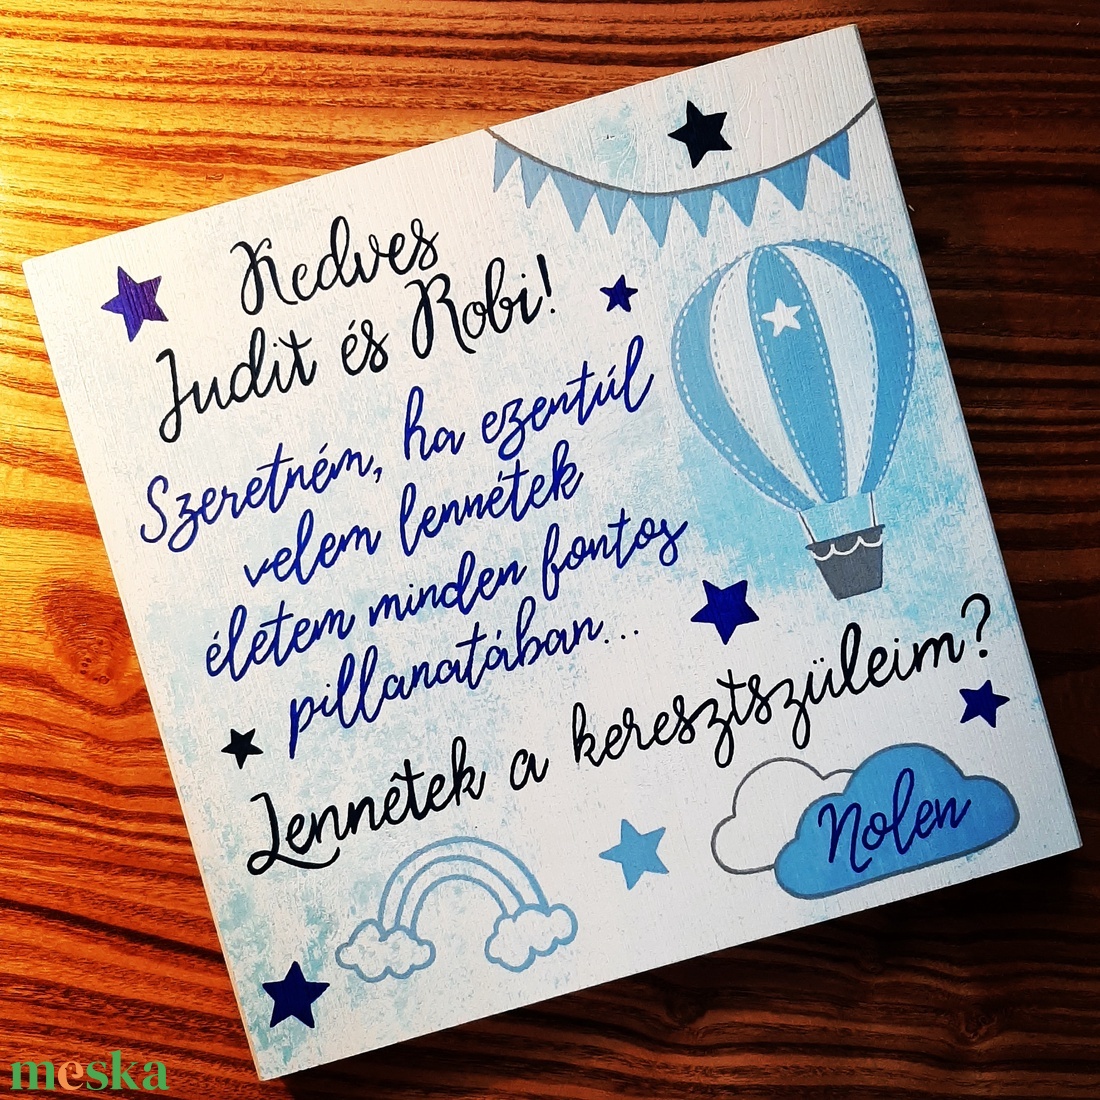 Kedves
Judit és Robi!
Szeretném, ha ezentúl
velem lennétek
életem minden fontos
pillanatában...
Lennétek a keresztszüleim?
Nolen
meska